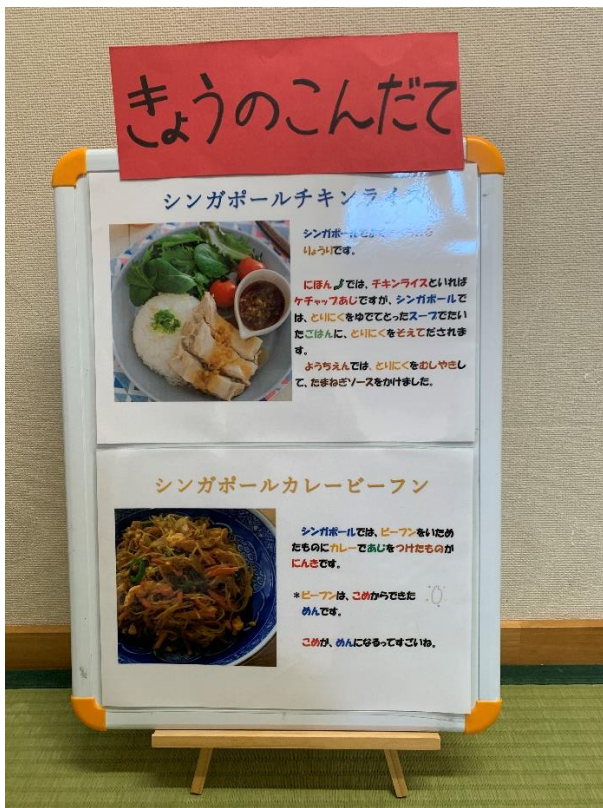 きょうのこんだて
シンガポールチキンライス
シンガポールで
りょうりです。
にほんでは、チキンライスといれば
ケチャップあじですが、シンガポールで
は、とりにくをゆでてとったスープでたい
たごはんに、とりにくをそえてだされま
す。
ようちえんでは、とりにくをむしやきし
て、たまねぎソースをかけました。
シンガポールカレービーフン
シンガポールでは、ビーフンをいため
たものにカレーであじをつけたものが
にんきです。
*ビーフンは、こめからできた
めんです。
こめが、めんになるってすごいね。